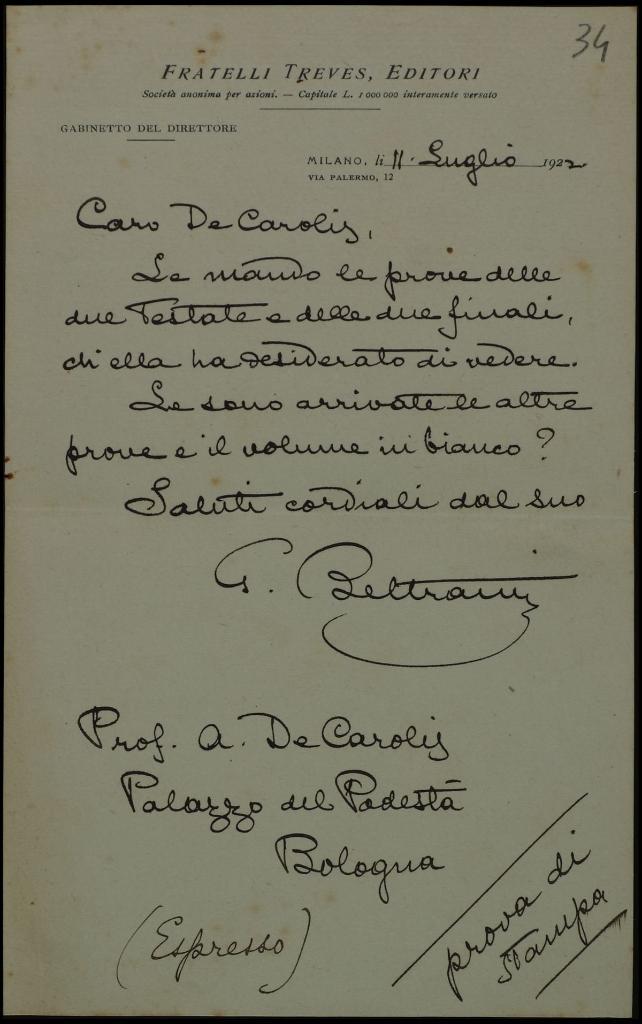 34
FRATELLI TREVES, EDITORI
Società anonima per azioni. — Capitale L. 1 000 000 interamente versato
GABINETTO DEL DIRETTORE
MILANO, li 11. Luglio 1922
VIA PALERMO, 12
Caro De Carolis,
Le mando le prove delle
due Testate e delle due finali,
ch'ella ha desiderato di vedere.
Le sono arrivate le altre
prove e il volume in bianco?
Saluti cordiali dal suo
G. Beltrami
Prof. A. De Carolis
Palazzo del Podestà
Bologna
(Espresso)
prova di
stampa